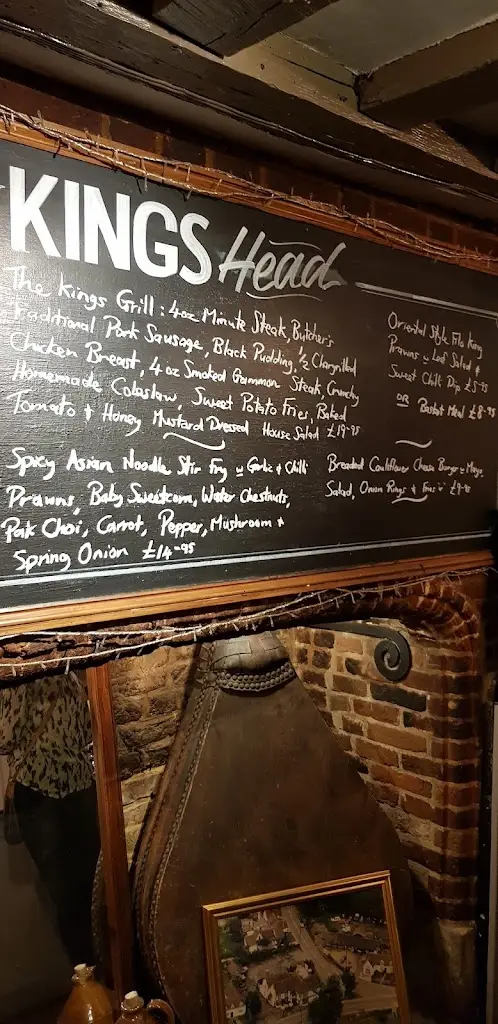 KINGS Head
The Kings Grill: 4oz Minute Steak, Butcher's
Traditional Pork Sausage, Black Pudding, ½ Chargrilled
Chicken Breast, 4oz Smoked Gammon Steak, Crunchy
Homemade Coleslaw, Sweet Potato Fries, Baked
Tomato + Honey Mustard Dressed House Salad £19-95
Spicy Asian Noodle Stir Fry w Garlic & Chilli
Prawns, Baby Sweetcorn, Water Chestnuts,
Pak Choi, Carrot, Pepper, Mushroom +
Spring Onion £14-95
Oriental Style Filo King
Prawns w Leaf Salad &
Sweet Chilli Dip £5-95
OR Basket Meal £8-95
Breaded Cauliflower Cheese Burger w Mayo,
Salad, Onion Rings + Fries